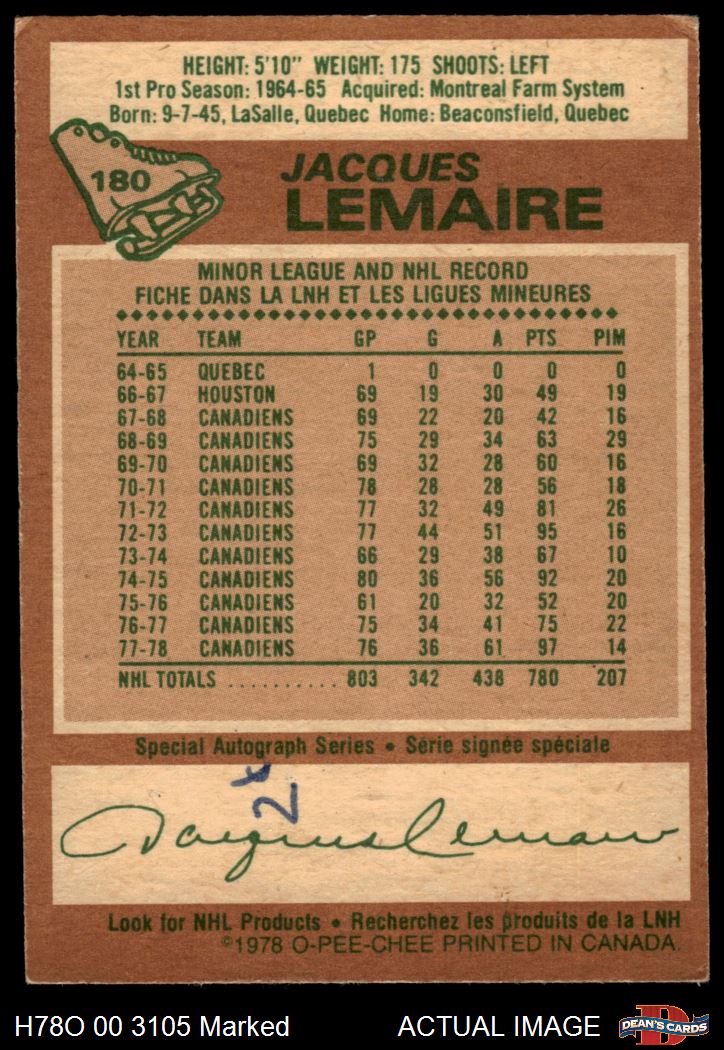 HEIGHT: 5'10" WEIGHT: 175 SHOOTS: LEFT
1st Pro Season: 1964-65 Acquired: Montreal Farm System
Born: 9-7-45, LaSalle, Quebec Home: Beaconsfield, Quebec
180
JACQUES
LEMAIRE
MINOR LEAGUE AND NHL RECORD
FICHE DANS LA LNH ET LES LIGUES MINEURES
YEAR TEAM GP G A PTS PIM
64-65 QUEBEC 1 0 0 0 0
66-67 HOUSTON 69 19 30 49 19
67-68 CANADIENS 69 22 20 42 16
68-69 CANADIENS 75 29 34 63 29
69-70 CANADIENS 69 32 28 60 16
70-71 CANADIENS 78 28 28 56 18
71-72 CANADIENS 77 32 49 81 26
72-73 CANADIENS 77 44 51 95 16
73-74 CANADIENS 66 29 38 67 10
74-75 CANADIENS 80 36 56 92 20
75-76 CANADIENS 61 20 32 52 20
76-77 CANADIENS 75 34 41 75 22
77-78 CANADIENS 76 36 61 97 14
NHL TOTALS .......... 803 342 438 780 207
Special Autograph Series • Série signée spéciale
2x
Jacques Lemaire
Look for NHL Products • Recherchez les produits de la LNH
©1978 O-PEE-CHEE PRINTED IN CANADA.
H78O 00 3105 Marked ACTUAL IMAGE DEAN'S CARDS